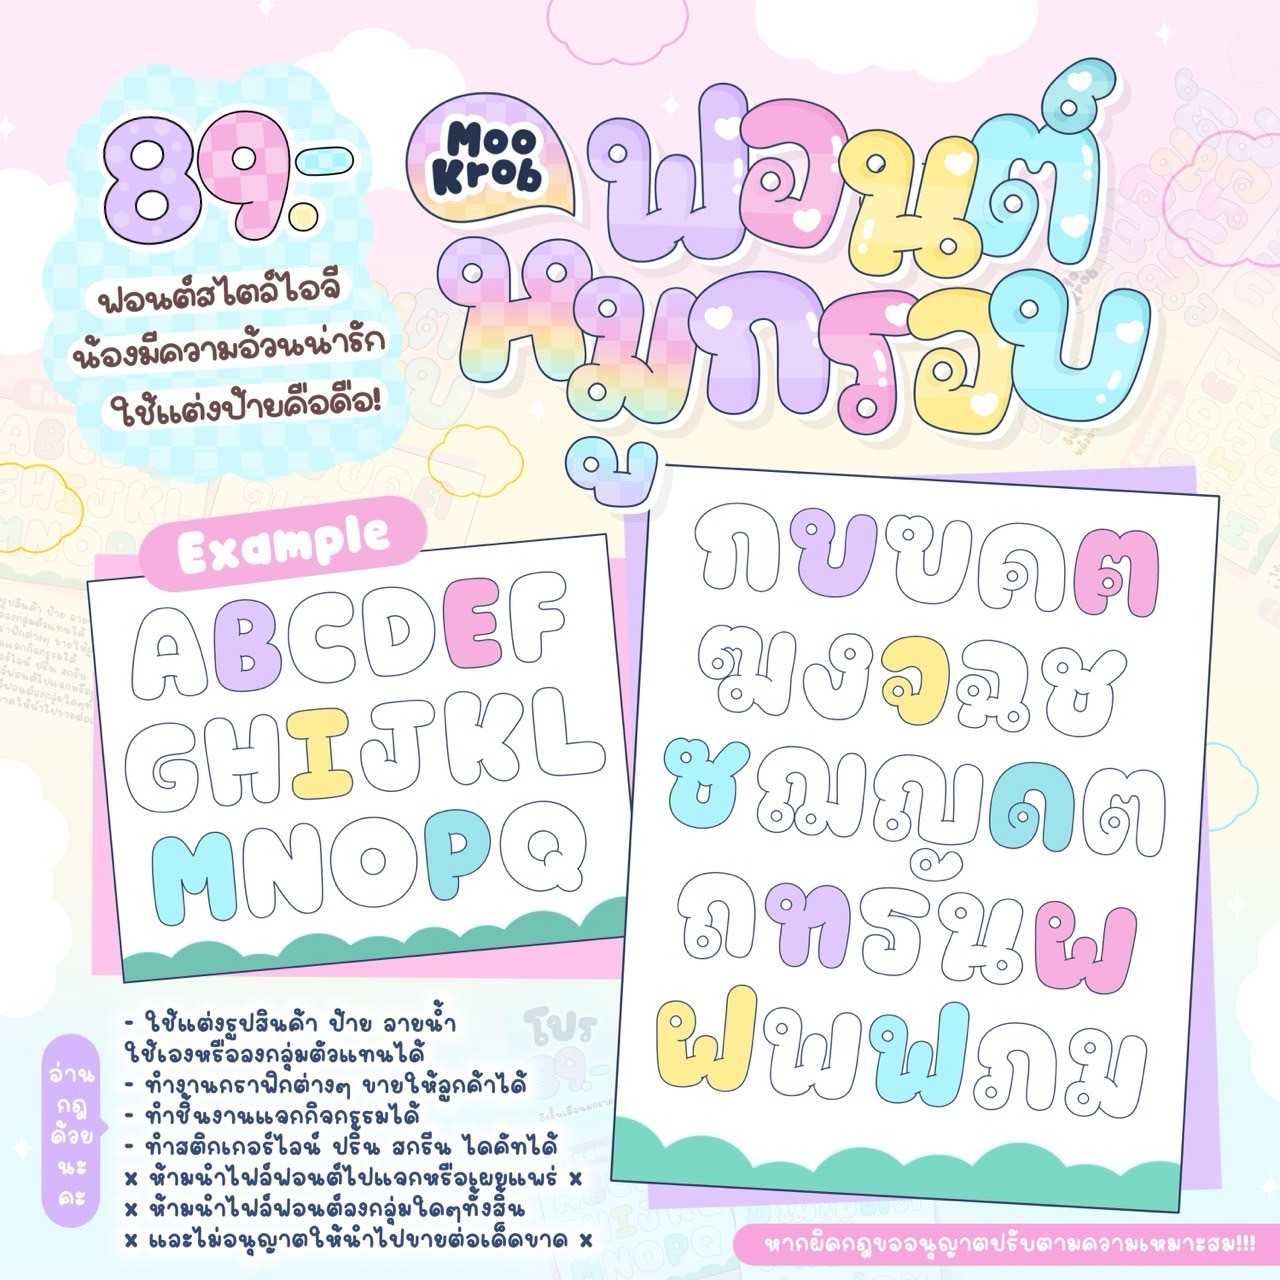 89.-
ฟอนต์สไตล์ไอจี
น้องมีความอ้วนน่ารัก
ใช้แต่งป้ายคือดือ!
Moo
Krob
ฟอนต์
หมูกรอบ
Example
ABCDEF
GHIJKL
MNOPQ
กขฃคฅ
ฆงจฉช
ซฌญดต
ถทธนผ
ฝพฟภม
อ่าน
กฎ
ด้วย
นะ
คะ
- ใช้แต่งรูปสินค้า ป้าย ลายน้ำ
ใช้เองหรือลงกลุ่มตัวแทนได้
- ทำงานกราฟิกต่างๆ ขายให้ลูกค้าได้
- ทำชิ้นงานแจกกิจกรรมได้
- ทำสติกเกอร์ไลน์ ปริ้น สกรีน ไดคัทได้
x ห้ามนำไฟล์ฟอนต์ไปแจกหรือเผยแพร่ x
x ห้ามนำไฟล์ฟอนต์ลงกลุ่มใดๆทั้งสิ้น
x และไม่อนุญาตให้นำไปขายต่อเด็ดขาด x
หากผิดกฎขออนุญาตปรับตามความเหมาะสม!!!
โปร
39.-